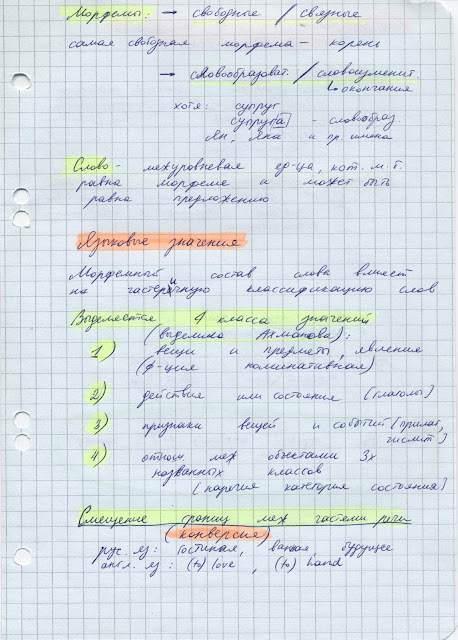 Морфемы: → свободные / связные
самая свободная морфема – корень
→ словообразоват. / словоизменит.
↳ окончания
хотя: супруг
супруга – словообраз.
Ян, Яна и пр. имена
Слово – межуровневая ед-ца, кот. м. б.
равна морфеме и может быть
равна предложению
Языковые значения
Морфемный состав слова влияет
на частеречную классификацию слов
Выделяется 4 класса значений
(выделила Ахманова):
1) вещи и предметы, явления
(ф-ция номинативная)
2) действия или состояния [глаголы]
3) признаки вещей и событий [прилаг,
числит]
4) отнош. меж объектами 3х
названных классов
[наречия категория состояния]
Смещение границ меж частями речи
(конверсия)
рус. яз: Гостиная, ванная, будущее
англ. яз: (to) love, (to) hand